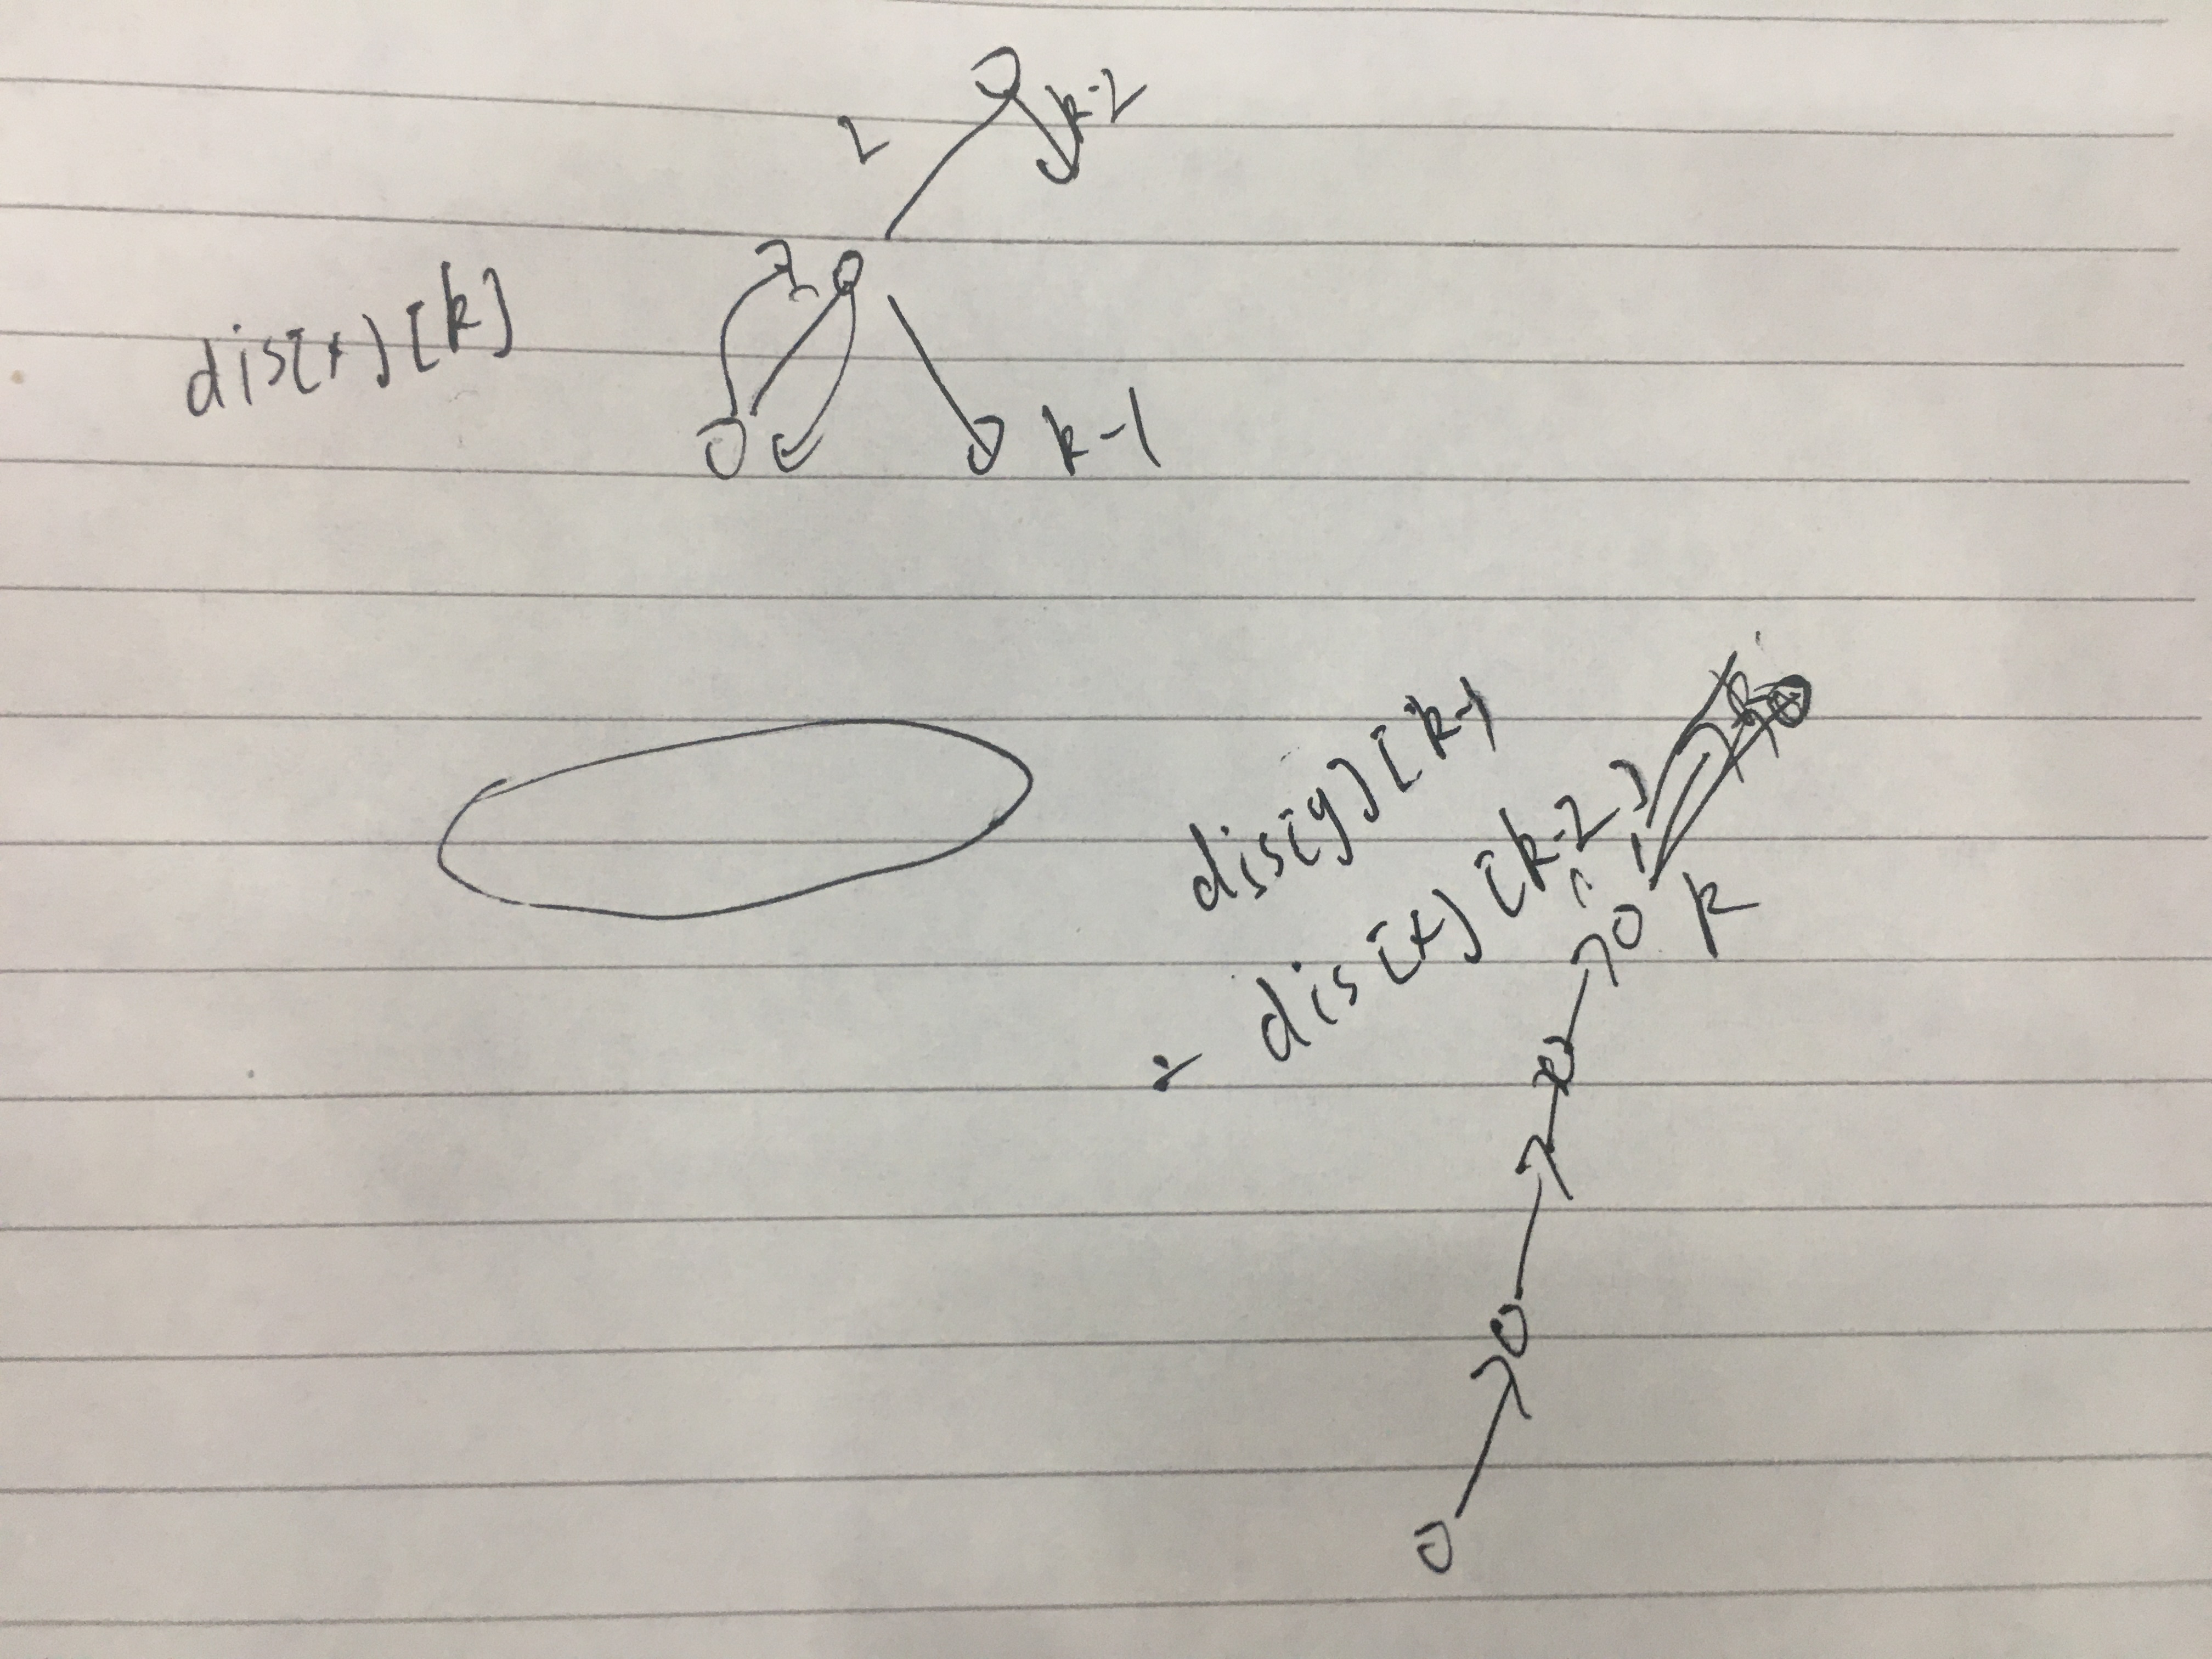 2
k-2
dis[x][k]
k-1
dis[y][k-1
- dis[x][k-2]
k